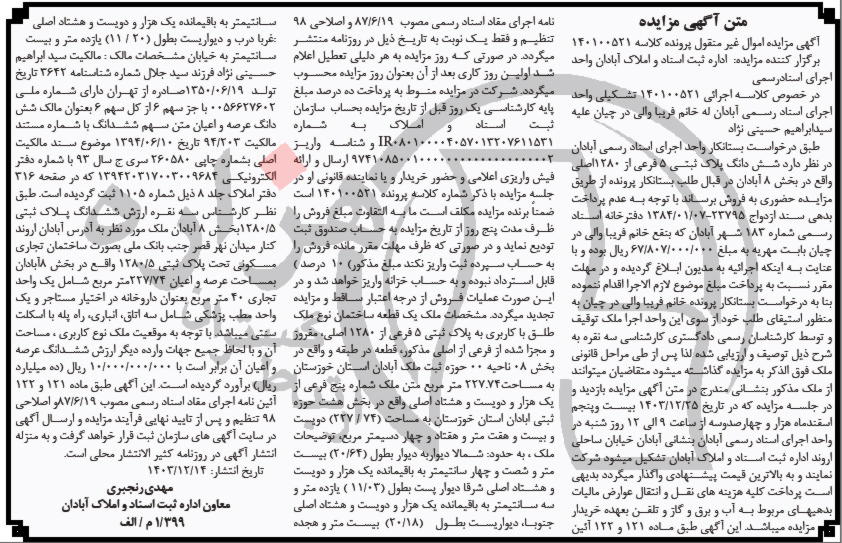 متن آگهی مزایده
آگهی مزایده اموال غیر منقول پرونده کلاسه ۱۴۰۱۰۰۵۲۱
برگزار کننده مزایده: اداره ثبت اسناد و املاک آبادان واحد
اجرای اسنادرسمی
در خصوص کلاسه اجرائی ۱۴۰۱۰۰۵۲۱ تشکیلی واحد
اجرای اسناد رسمی آبادان له خانم فریبا والی در چیان علیه
سیدابراهیم حسینی نژاد
طبق درخواست بستانکار واحد اجرای اسناد رسمی آبادان
در نظر دارد شش دانگ پلاک ثبتی ۵ فرعی از ۱۲۸۰اصلی
واقع در بخش ۸ آبادان در قبال طلب بستانکار پرونده از طریق
مزایده حضوری به فروش برساند با توجه به عدم پرداخت
بدهی سند ازدواج ۲۳۷۹۵-۱۳۸۴/۰۱/۰۷ دفترخانه اسناد
رسمی شماره ۱۸۳ شهر آبادان که بنفع خانم فریبا والی در
چیان بابت مهریه به مبلغ ۶۷/۸۰۷/۰۰۰/۰۰۰ ریال بوده و با
عنایت به اینکه اجرائیه به مدیون ابلاغ گردیده و در مهلت
مقرر نسبت به پرداخت مبلغ موضوع لازم الاجرا اقدام ننموده
بنا به درخواست بستانکار پرونده خانم فریبا والی در چیان به
منظور استیفای طلب خود از سوی این واحد اجرا ملک توقیف
و توسط کارشناسان رسمی دادگستری کارشناسی سه نفره به
شرح ذیل توصیف و ارزیابی شده لذا پس از طی مراحل قانونی
ملک فوق الذکر به مزایده گذاشته میشود متقاضیان میتوانند
از ملک مذکور بنشانی مندرج در متن آگهی مزایده بازدید و
در جلسه مزایده که در تاریخ ۱۴۰۳/۱۲/۲۵ بیست وپنجم
اسفندماه هزار و چهارصدوسه از ساعت ۹ الی ۱۲ روز شنبه در
واحد اجرای اسناد رسمی آبادان بنشانی آبادان خیابان ساحلی
اروند اداره ثبت اسناد و املاک آبادان تشکیل میشود شرکت
نمایند و به بالاترین قیمت پیشنهادی واگذار میگردد بدیهی
است پرداخت کلیه هزینه های نقل و انتقال عوارض مالیات
بدهیهای مربوط به آب و برق و گاز و تلفن بعهده خریدار
مزایده میباشد. این آگهی طبق ماده ۱۲۱ و ۱۲۲ آئین
نامه اجرای مفاد اسناد رسمی مصوب ۸۷/۶/۱۹ و اصلاحی ۹۸
تنظیم و فقط یک نوبت به تاریخ ذیل در روزنامه منتشر
میگردد. در صورتی که روز مزایده به هر دلیلی تعطیل اعلام
شد اولین روز کاری بعد از آن بعنوان روز مزایده محسوب
میگردد. شرکت در مزایده منوط به پرداخت ده درصد مبلغ
پایه کارشناسی یک روز قبل از تاریخ مزایده بحساب سازمان
ثبت اسناد و املاک به شماره
و شناسه واریز
ارسال و ارائه
فیش واریزی اعلامی و حضور خریدار و یا نماینده قانونی او در
جلسه مزایده با ذکر شماره کلاسه پرونده ۱۴۰۱۰۰۵۲۱ است
ضمناً برنده مزایده مکلف است ما به التفاوت مبلغ فروش را
ظرف مدت پنج روز از تاریخ مزایده به حساب صندوق ثبت
تودیع نماید و در صورتی که ظرف مهلت مقرر مانده فروش را
به حساب سپرده ثبت واریز نکند مبلغ مذکور) ۱۰ درصد )
قابل استرداد نبوده و به حساب خزانه واریز خواهد شد و در
این صورت عملیات فروش از درجه اعتبار ساقط و مزایده
تجدید میگردد. مشخصات ملک یک قطعه ساختمان نوع ملک
طلق با کاربری به پلاک ثبتی ۵ فرعی از ۱۲۸۰ اصلی، مفروز
و مجزا شده از فرعی از اصلی مذکور، قطعه در طبقه و واقع در
بخش ۰۸ ناحیه ۰۰۰ حوزه ثبت ملک آبادان استان خوزستان
به مساحت۲۲۷.۷۴ متر مربع متن ملک شماره پنج فرعی از
یک هزار و دویست و هشتاد اصلی واقع در بخش هشت حوزه
ثبتی ابادان استان خوزستان به مساحت (۷۴ / ۲۲۷) دویست
و بیست و هفت متر و هفتاد و چهار دسیمتر مربع، توضیحات
ملک ، به حدود: شمالا دیواربه دیوار بطول (۲۰/۶۴) بیست
متر و شصت و چهار سانتیمتر به باقیمانده یک هزار و دویست
و هشتاد اصلی شرقا دیوار پست بطول (۱۱/۰۳ ) یازده متر و
سه سانتیمتر به باقیمانده یک هزار و دویست و هشتاد اصلی
جنوبا، دیواریست بطول (۲۰/۱۸) بیست متر و هجده
سانتیمتر به باقیمانده یک هزار و دویست و هشتاد اصلی
:غربا درب و دیواریست بطول (۲۰ / ۱۱) یازده متر و بیست
سانتیمتر به خیابان مشخصات مالک : مالکیت سید ابراهیم
حسینی نژاد فرزند سید جلال شماره شناسنامه ۳۶۴۲ تاریخ
تولد ۱۳۵۰/۰۶/۱۹صادره از تهران دارای شماره ملی
۰۰۵۶۶۲۷۶۰۲ با جز سهم ۶ از کل سهم ۶ بعنوان مالک شش
دانگ عرصه و اعیان متن سهم ششدانگ با شماره مستند
مالکیت ۹۴/۲۰۳ تاریخ ۱۳۹۴/۰۶/۱۰ موضوع سند مالکیت
اصلی بشماره چاپی ۲۶۰۵۸۰ سری ج سال ۹۳ با شماره دفتر
الکترونیکی ۱۳۹۴۲۰۳۱۷۰۰۳۰۰۹۶۸۴ که در صفحه ۳۱۶
دفتر املاک جلد ۸ ذیل شماره ۱۱۰۵ ثبت گردیده است. طبق
نظر کارشناس سه نفره ارزش ششدانگ پلاک ثبتی
۱۲۸۰/۵بخش ۸ آبادان ملک مورد نظر به آدرس آبادان اروند
کنار میدان نهر قصر جنب بانک ملی بصورت ساختمان تجاری
مسکونی تحت پلاک ثبتی ۱۲۸۰/۵ واقع در بخش ۸آبادان
بمساحت عرصه و اعیان ۲۲۷/۷۴متر مربع شامل یک واحد
تجاری ۴۰ متر مربع بعنوان داروخانه در اختیار مستاجر و یک
واحد مطب پزشکی شامل سه اتاق، انباری، راه پله با اسکلت
سنتی میباشد با توجه به موقعیت ملک نوع کاربری ، مساحت
آن و با لحاظ جمیع جهات وارده دیگر ارزش ششدانگ عرصه
و اعیان آن برابر است با ۱۰/۰۰۰/۰۰۰/۰۰۰ ریال (ده میلیارد
ریال برآورد گردیده است. این آگهی طبق ماده ۱۲۱ و ۱۲۲
آئین نامه اجرای مفاد اسناد رسمی مصوب ۸۷/۶/۱۹و اصلاحی
۹۸ تنظیم و پس از تایید نهایی فرآیند مزایده و ارسال آگهی
در سایت آگهی های سازمان ثبت قرار خواهد گرفت و به منزله
انتشار آگهی در روزنامه کثیر الانتشار محلی است.
تاریخ انتشار: ۱۴۰۳/۱۲/۱۴
مهدی رنجبری
معاون اداره ثبت اسناد و املاک آبادان
۱/۳۹۹ م / الف